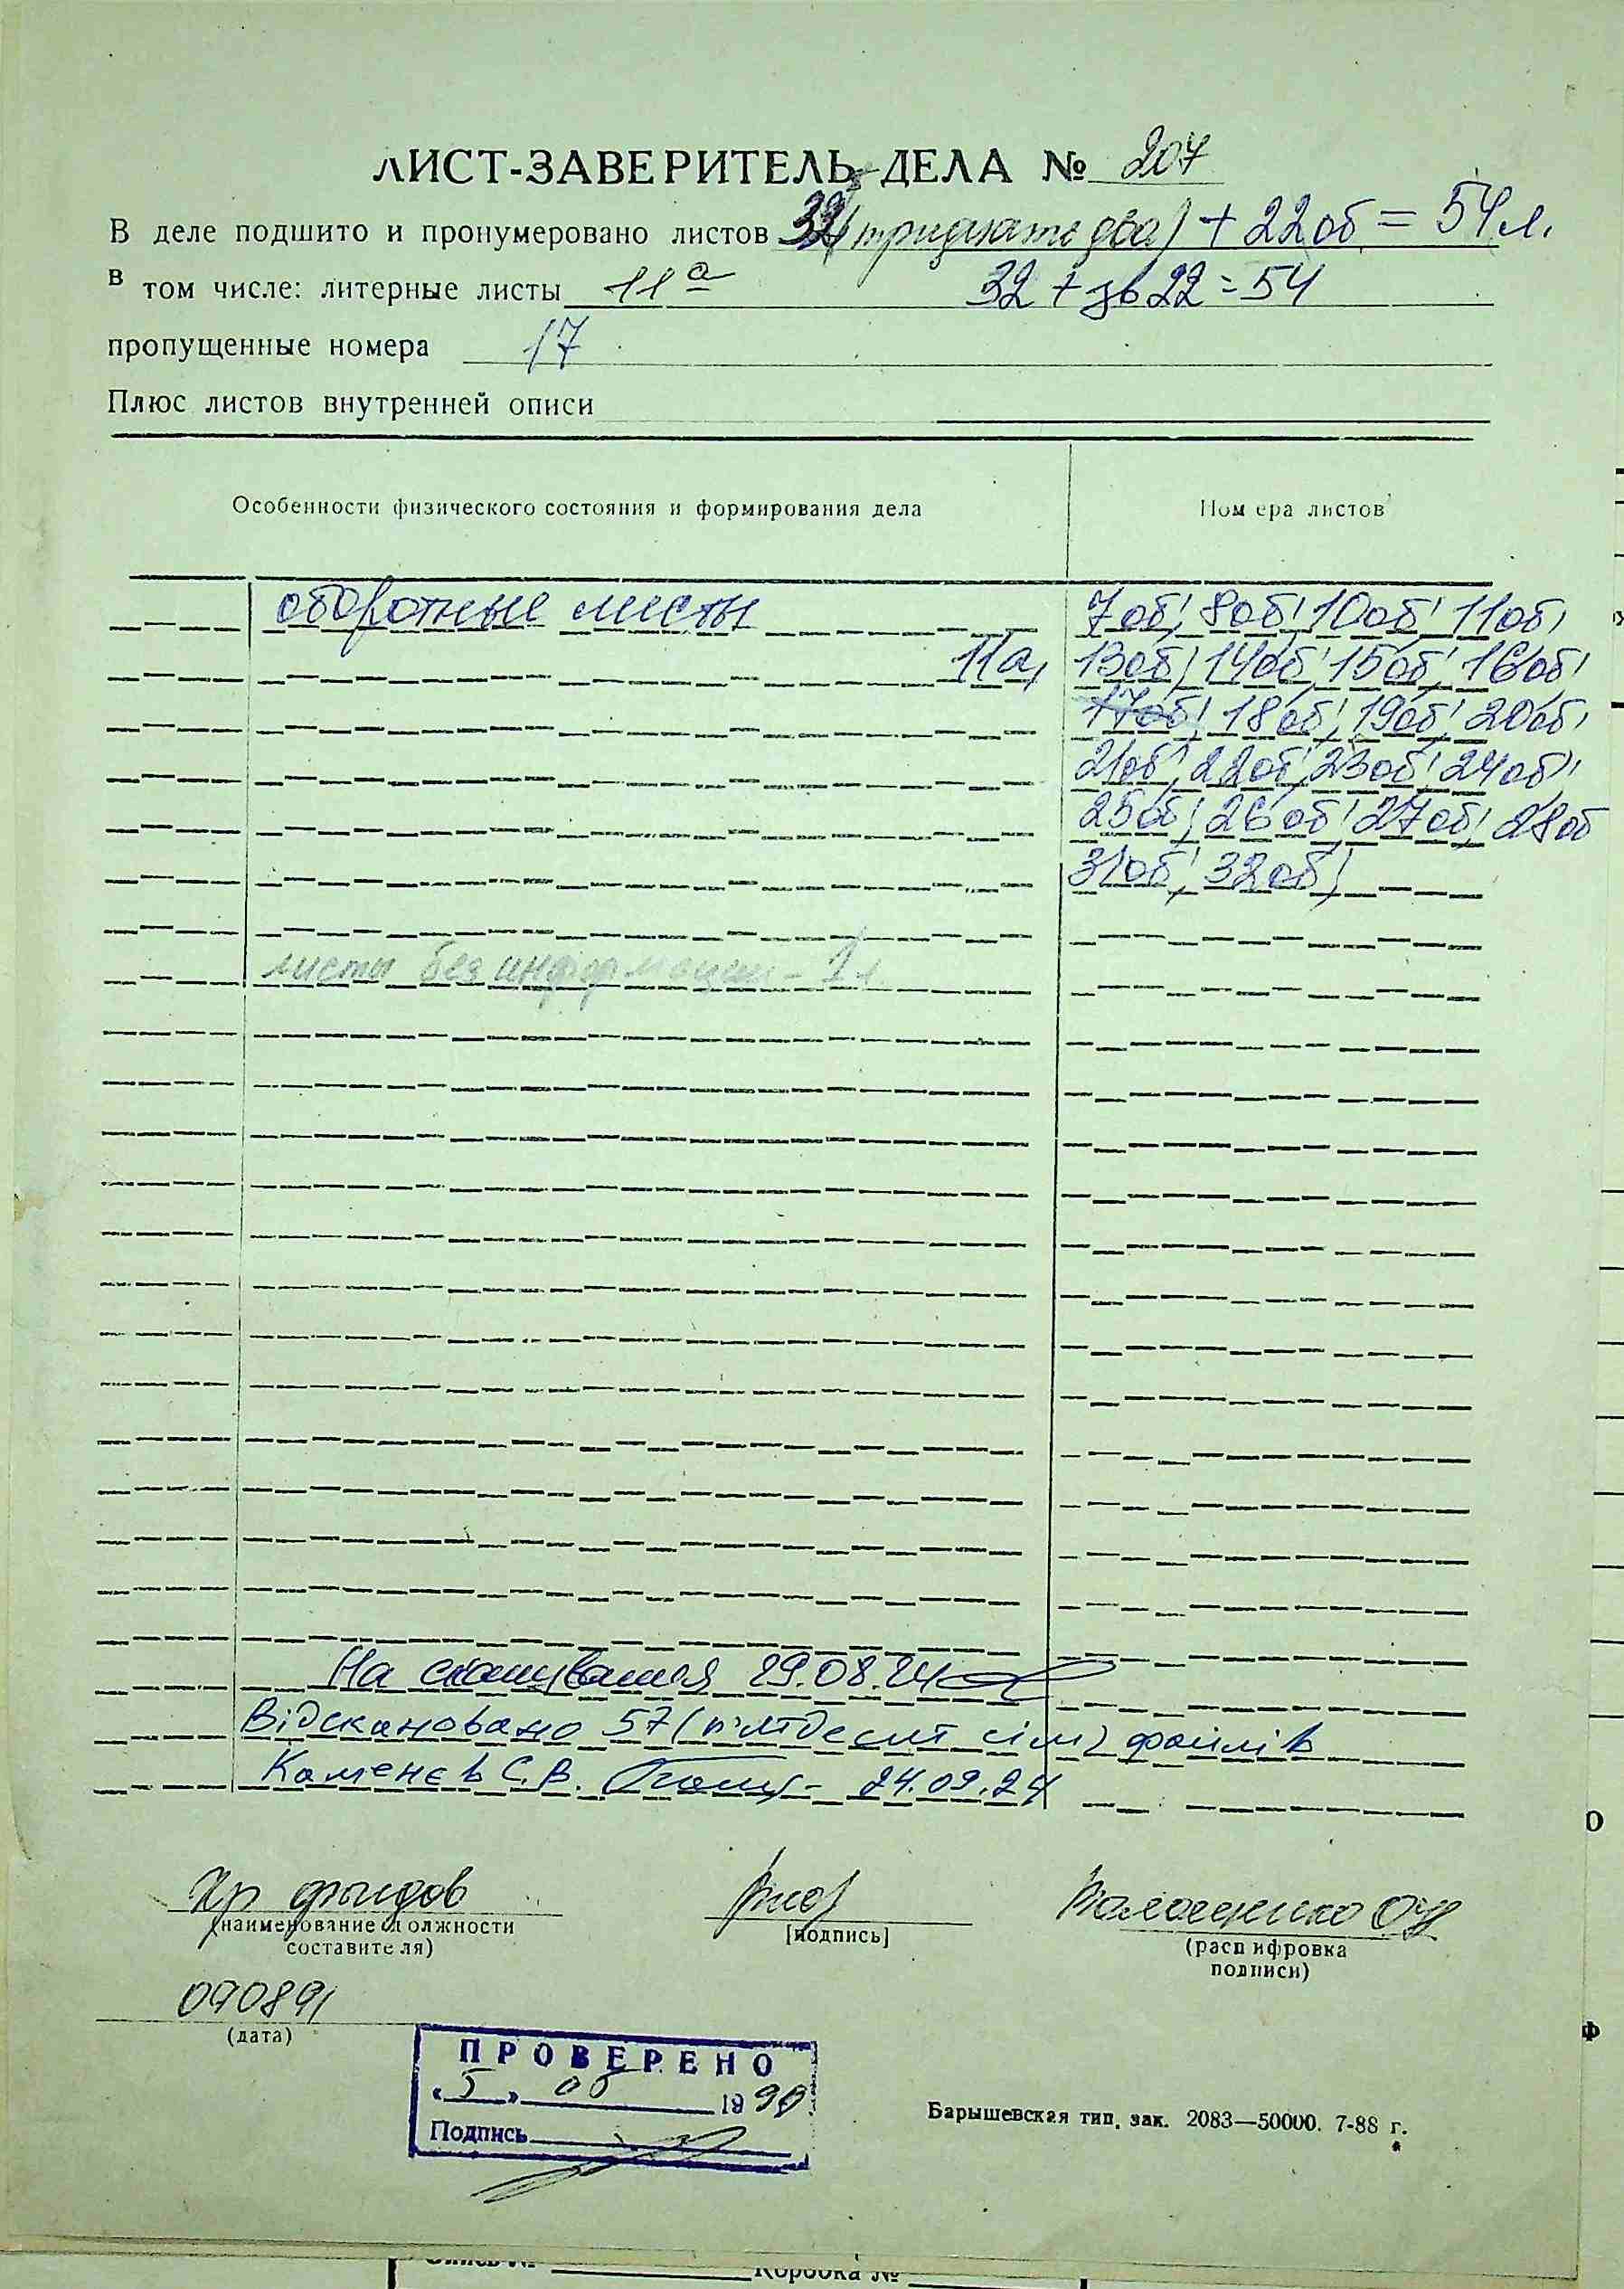 ЛИСТ-ЗАВЕРИТЕЛЬ ДЕЛА № 207
В деле подшито и пронумеровано листов 32 (тридцать два) + 22 об = 54 л.
в том числе: литерные листы 11а 32 + зв 22 = 54
пропущенные номера 17
Плюс листов внутренней описи
Особенности физического состояния и формирования дела Номера листов
оборотные листы 7об, 8об, 10об, 11об,
11а, 13об, 14об, 15об, 16об,
17об, 18об, 19об, 20об,
21об, 22об, 23об, 24об,
25об, 26об, 27об, 28об
31об, 32об,
листы без информации - 1 л
На сканування 29.08.24
Відскановано 57 (п'ятдесят сім) файлів
Каменєв С.В. 24.09.24
Хр фондов
(наименование должности составителя)
[подпись]
(расшифровка подписи)
090891
(дата)
ПРОВЕРЕНО
« 5 » 1999
Подпись
Барышевская тип. зак. 2083—50000. 7-88 г.
Коробка №